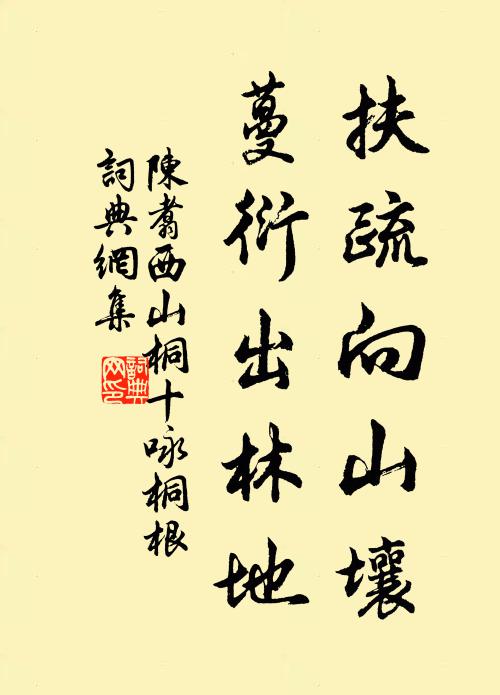 扶疏向山壤
蔓衍出林地
陳翥西山桐十咏桐根
詞典網集
詞典网印